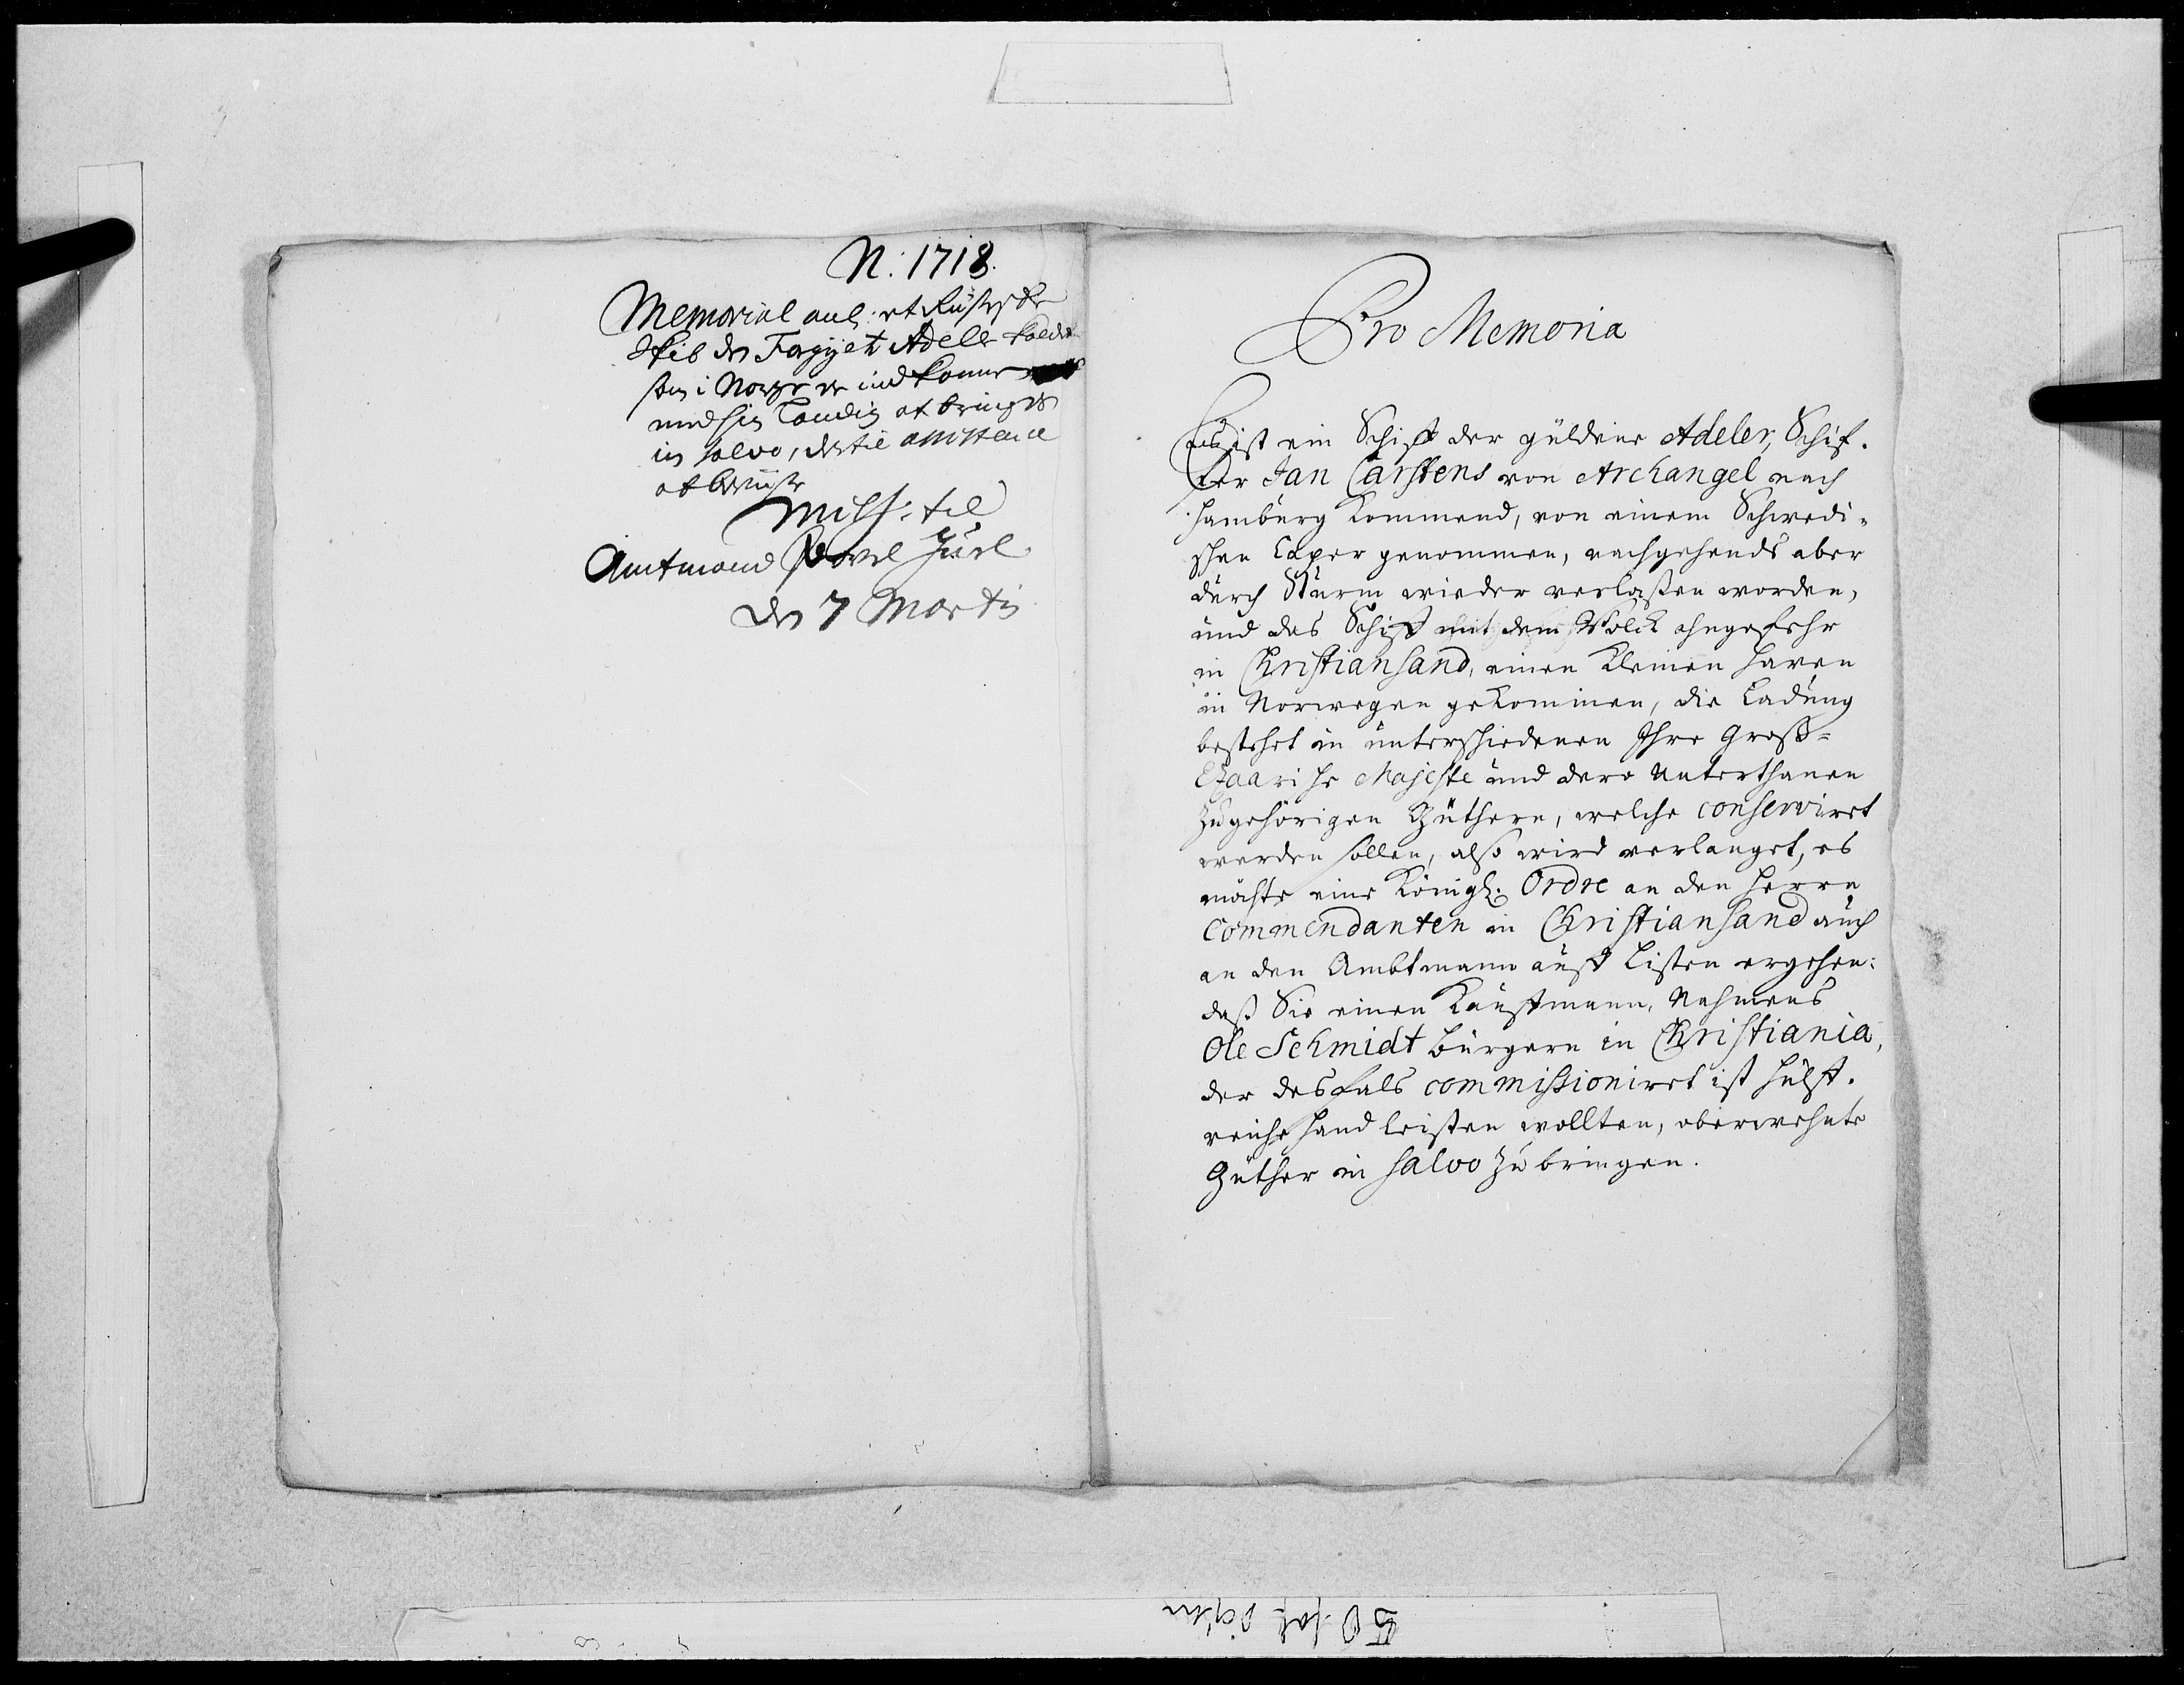 N: 1718.
Memorial anl: et Russiske
Skib den Forgyelt Adeler kaldet
som i Norge er indkommen
med sin Ladning at bringes
in salvo, dertil assistence
at beviise
Miss: til
Amtmand Povel Juel
den 7 Martij
Pro Memoria
Es ist ein Schiff der güldene Adeler, Schif-
fer Jan Carstens von Archangel nach
Hamburg kommend, von einem Schwedi-
schen Caper genommen, nachgehends aber
durch Sturm wieder verlaßen worden,
und das Schiff mit dem Volck ohngefehr
in Christiansand, einen kleinen Haven
in Norwegen gekommen, die Ladung
bestehet in unterschiedenen Ihre Groß-
Czaarische Majeste und dero Unterthanen
zugehörigen Güthern, welche conserviret
werden sollen, also wird verlanget, es
möchte eine Königl. Ordre an den Herrn
Commendanten in Christiansand auch
an den Ambtmann auff Listen ergehen:
daß Sie einen Kauffmann, Nahmens
Ole Schmidt bürgern in Christiania,
der desfals commissioniret ist hülff-
reiche Hand leisten wollten, oberwehnte
Güther in salvo zu bringen.